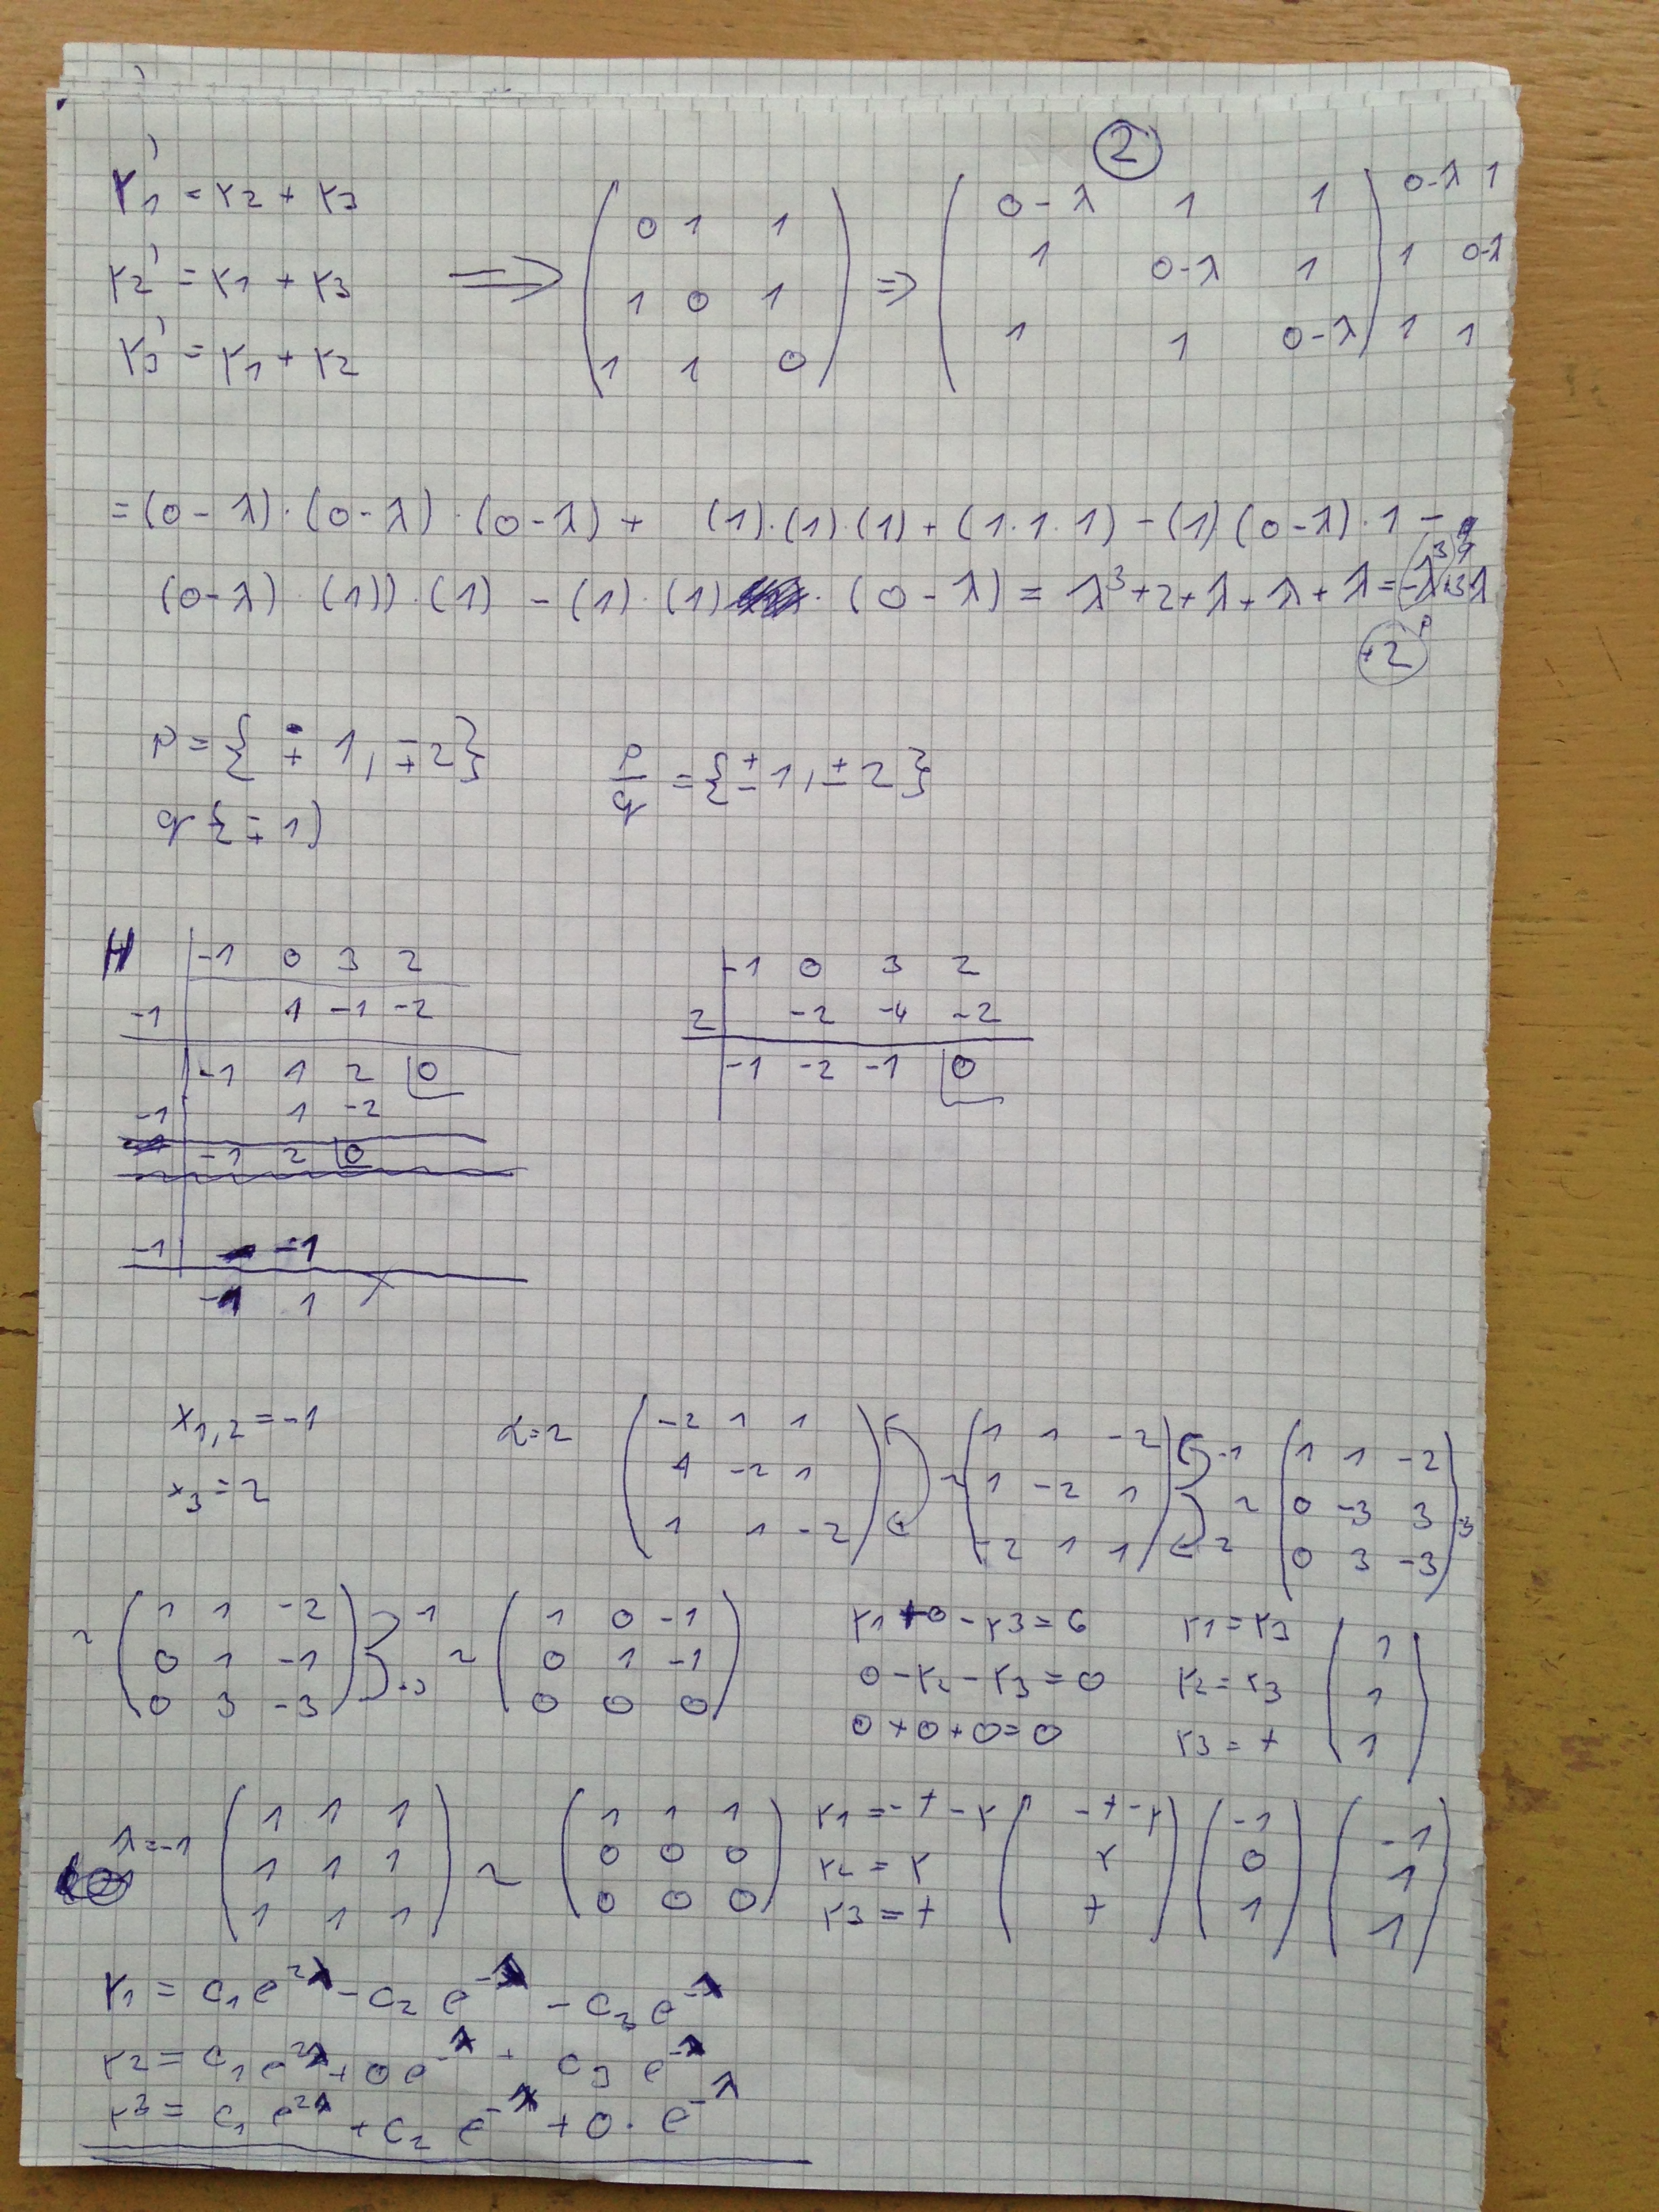 ②
r1' = r2 + r3
r2' = r1 + r3
r3' = r1 + r2
⟹ ( 0 1 1
1 0 1
1 1 0 )
⇒ ( 0-λ 1 1 ) 0-λ 1
1 0-λ 1 1 0-λ
1 1 0-λ 1 1
= (0-λ)·(0-λ)·(0-λ) + (1)·(1)·(1) + (1·1·1) - (1)(0-λ)·1 -
(0-λ)·(1))·(1) - (1)·(1)·(0-λ) = λ³+2+λ+λ+λ = -λ³+3λ
+2 p
p = { ∓ 1, ∓ 2 }
q { ∓ 1 )
p/q = { ± 1, ± 2 }
H -1 0 3 2
-1 1 -1 -2
-1 1 2 0
-1 1 -2
-1 2 0
-1 -1
-1 1
-1 0 3 2
2 -2 -4 -2
-1 -2 -1 0
x1,2 = -1
x3 = 2
λ=2 ( -2 1 1
1 -2 1
1 1 -2 )
~ ( 1 1 -2
1 -2 1
-2 1 1 ) -1 2
~ ( 1 1 -2
0 -3 3
0 3 -3 ) -3
~ ( 1 1 -2
0 1 -1
0 3 -3 ) -1 -3
~ ( 1 0 -1
0 1 -1
0 0 0 )
r1 + 0 - r3 = 0
0 - r2 - r3 = 0
0 + 0 + 0 = 0
r1 = r3
r2 = r3
r3 = t
( 1
1
1 )
λ=-1 ( 1 1 1
1 1 1
1 1 1 )
~ ( 1 1 1
0 0 0
0 0 0 )
r1 = -t - r
r2 = r
r3 = t
( -t-r
r
t )
( -1
0
1 )
( -1
1
1 )
r1 = c1 e^2x - c2 e^-x - c3 e^-x
r2 = c1 e^2x + 0 e^-x + c3 e^-x
r3 = c1 e^2x + c2 e^-x + 0 · e^-x